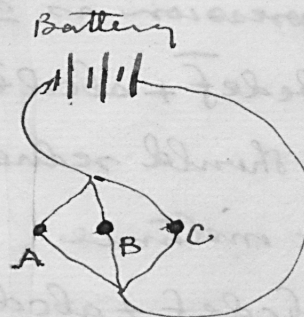 Battery
A
B
C